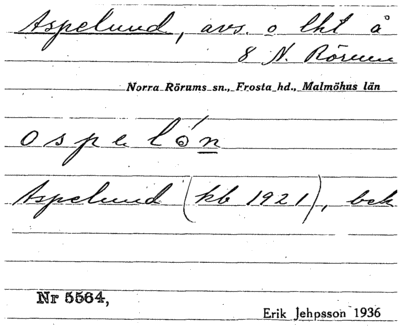 Aspelund, avs. o lht å
8 N. Rörum
Norra Rörums sn., Frosta hd., Malmöhus län
o s p e l ó n
Aspelund (kb 1921), bek
Nr 5564,
Erik Jeppsson 1936